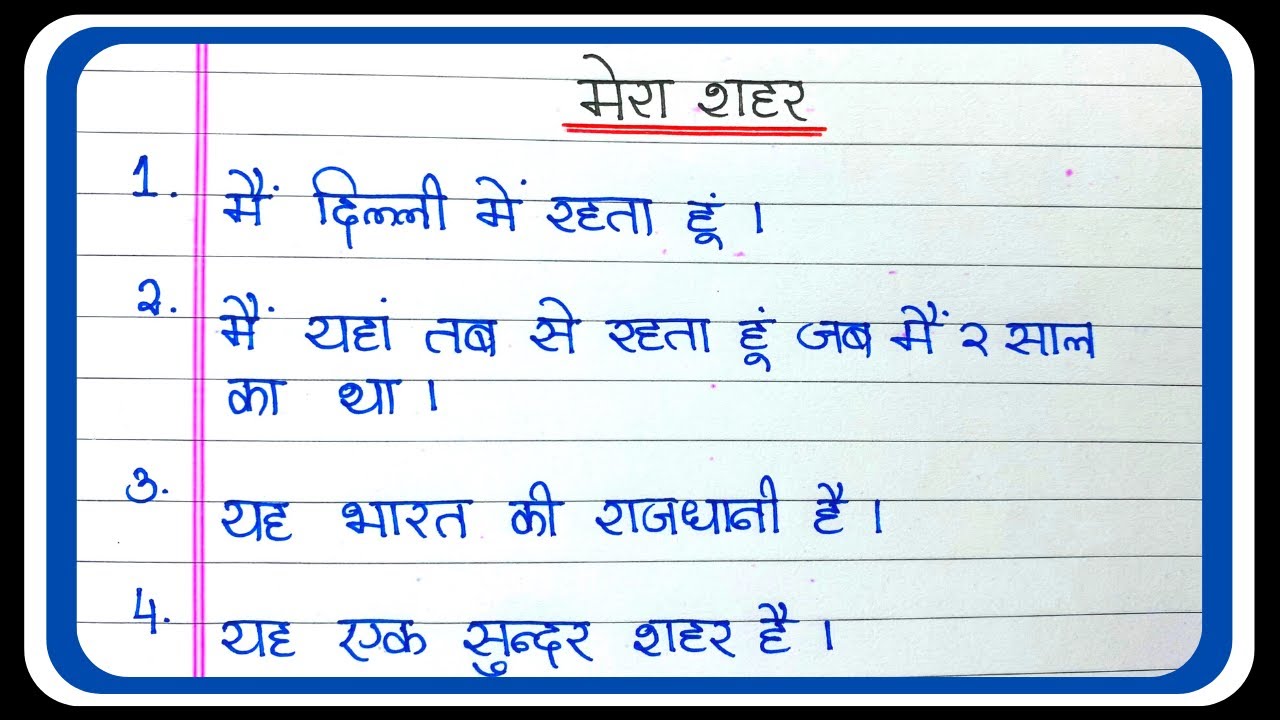 मेरा शहर
1. मैं दिल्ली में रहता हूं ।
2. मैं यहां तब से रहता हूं जब मैं २ साल
का था ।
3. यह भारत की राजधानी है ।
4. यह एक सुन्दर शहर है ।